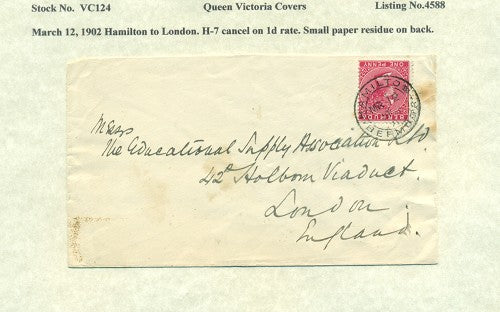 Stock No. VC124 Queen Victoria Covers Listing No.4588
March 12, 1902 Hamilton to London. H-7 cancel on 1d rate. Small paper residue on back.
ONE PENNY
BERMUDA
HAMILTON
BERMUDA
Messrs
The Educational Supply Association Ltd
42A Holborn Viaduct.
London.
England.